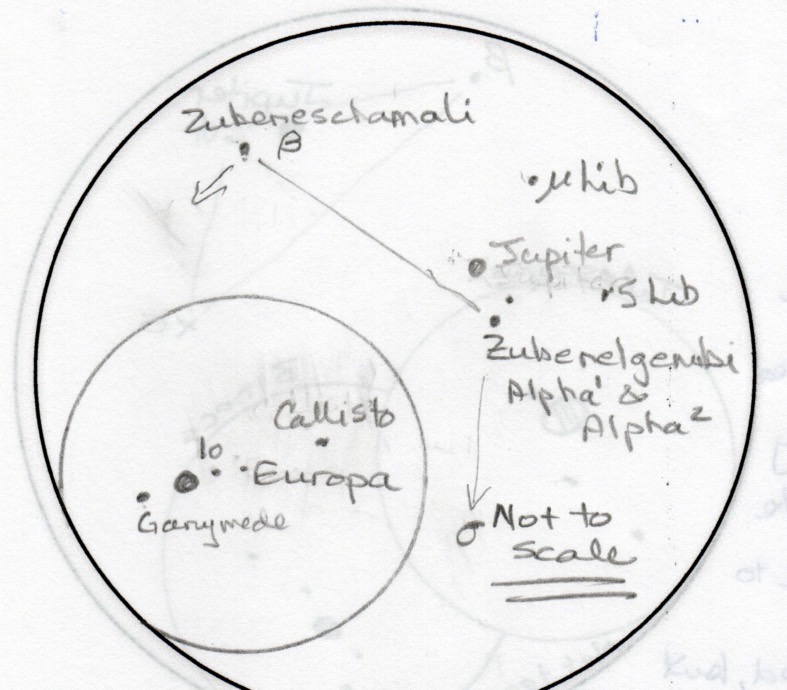 Zubeneschamali
β
μ Lib
Jupiter
5 Lib
Zubenelgenubi
Alpha¹ &
Alpha²
Callisto
Io
Europa
Ganymede
σ Not to
scale